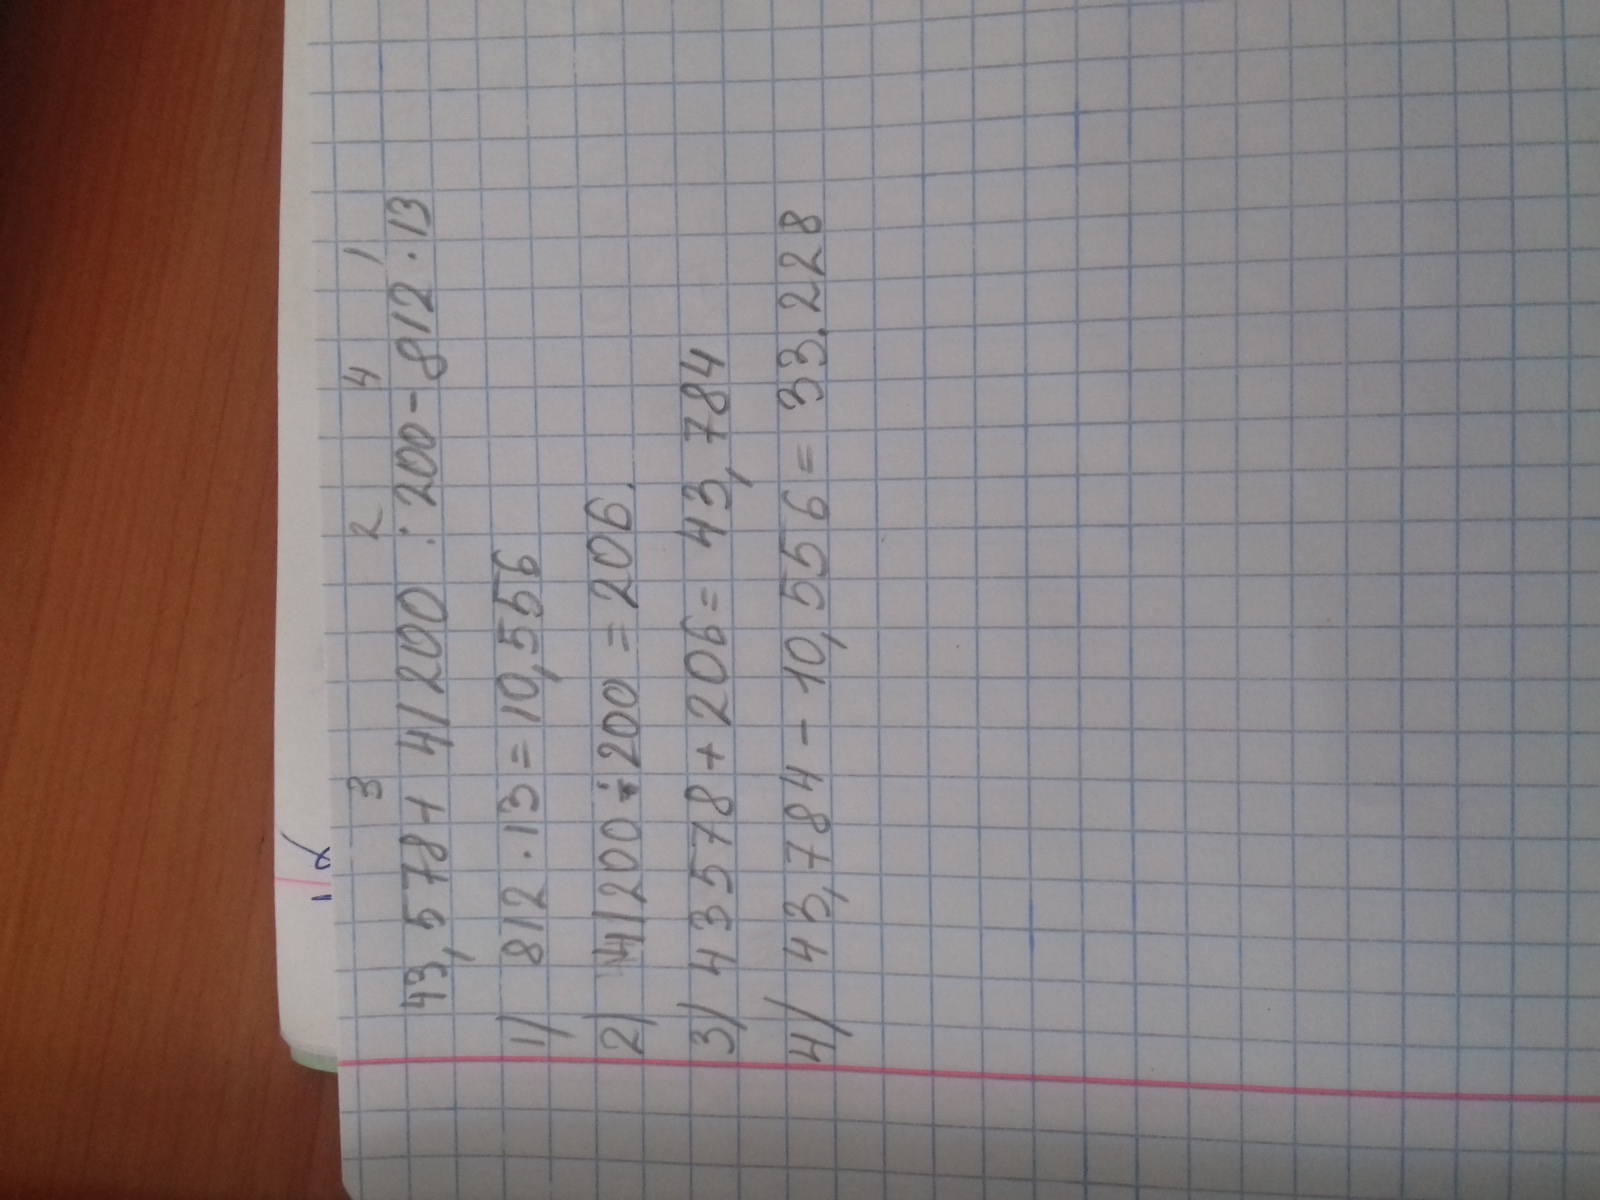 3 2 4 1
43,578+ 41200 : 200-812·13
1) 812·13=10,556
2) 41200÷200=206.
3) 43578+206=43,784
4) 43,784-10,556=33.228